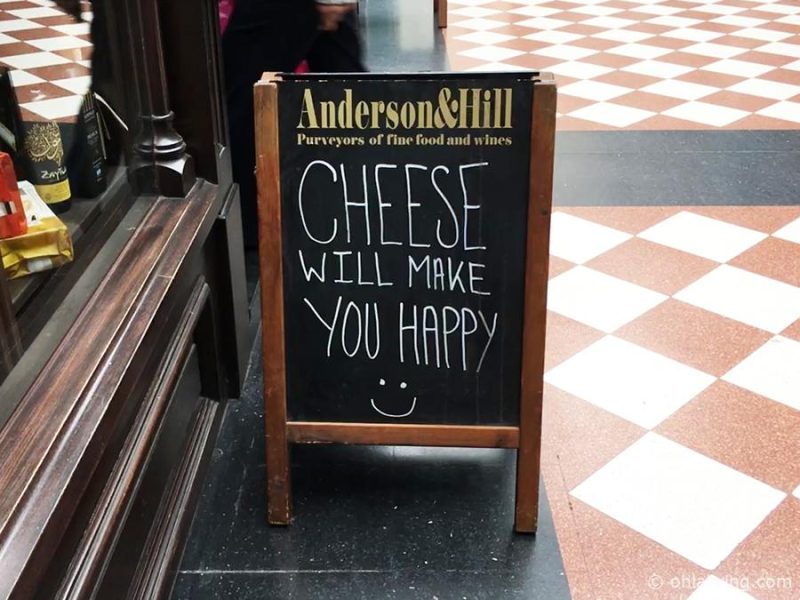 Anderson&Hill
Purveyors of fine food and wines
CHEESE
WILL MAKE
YOU HAPPY